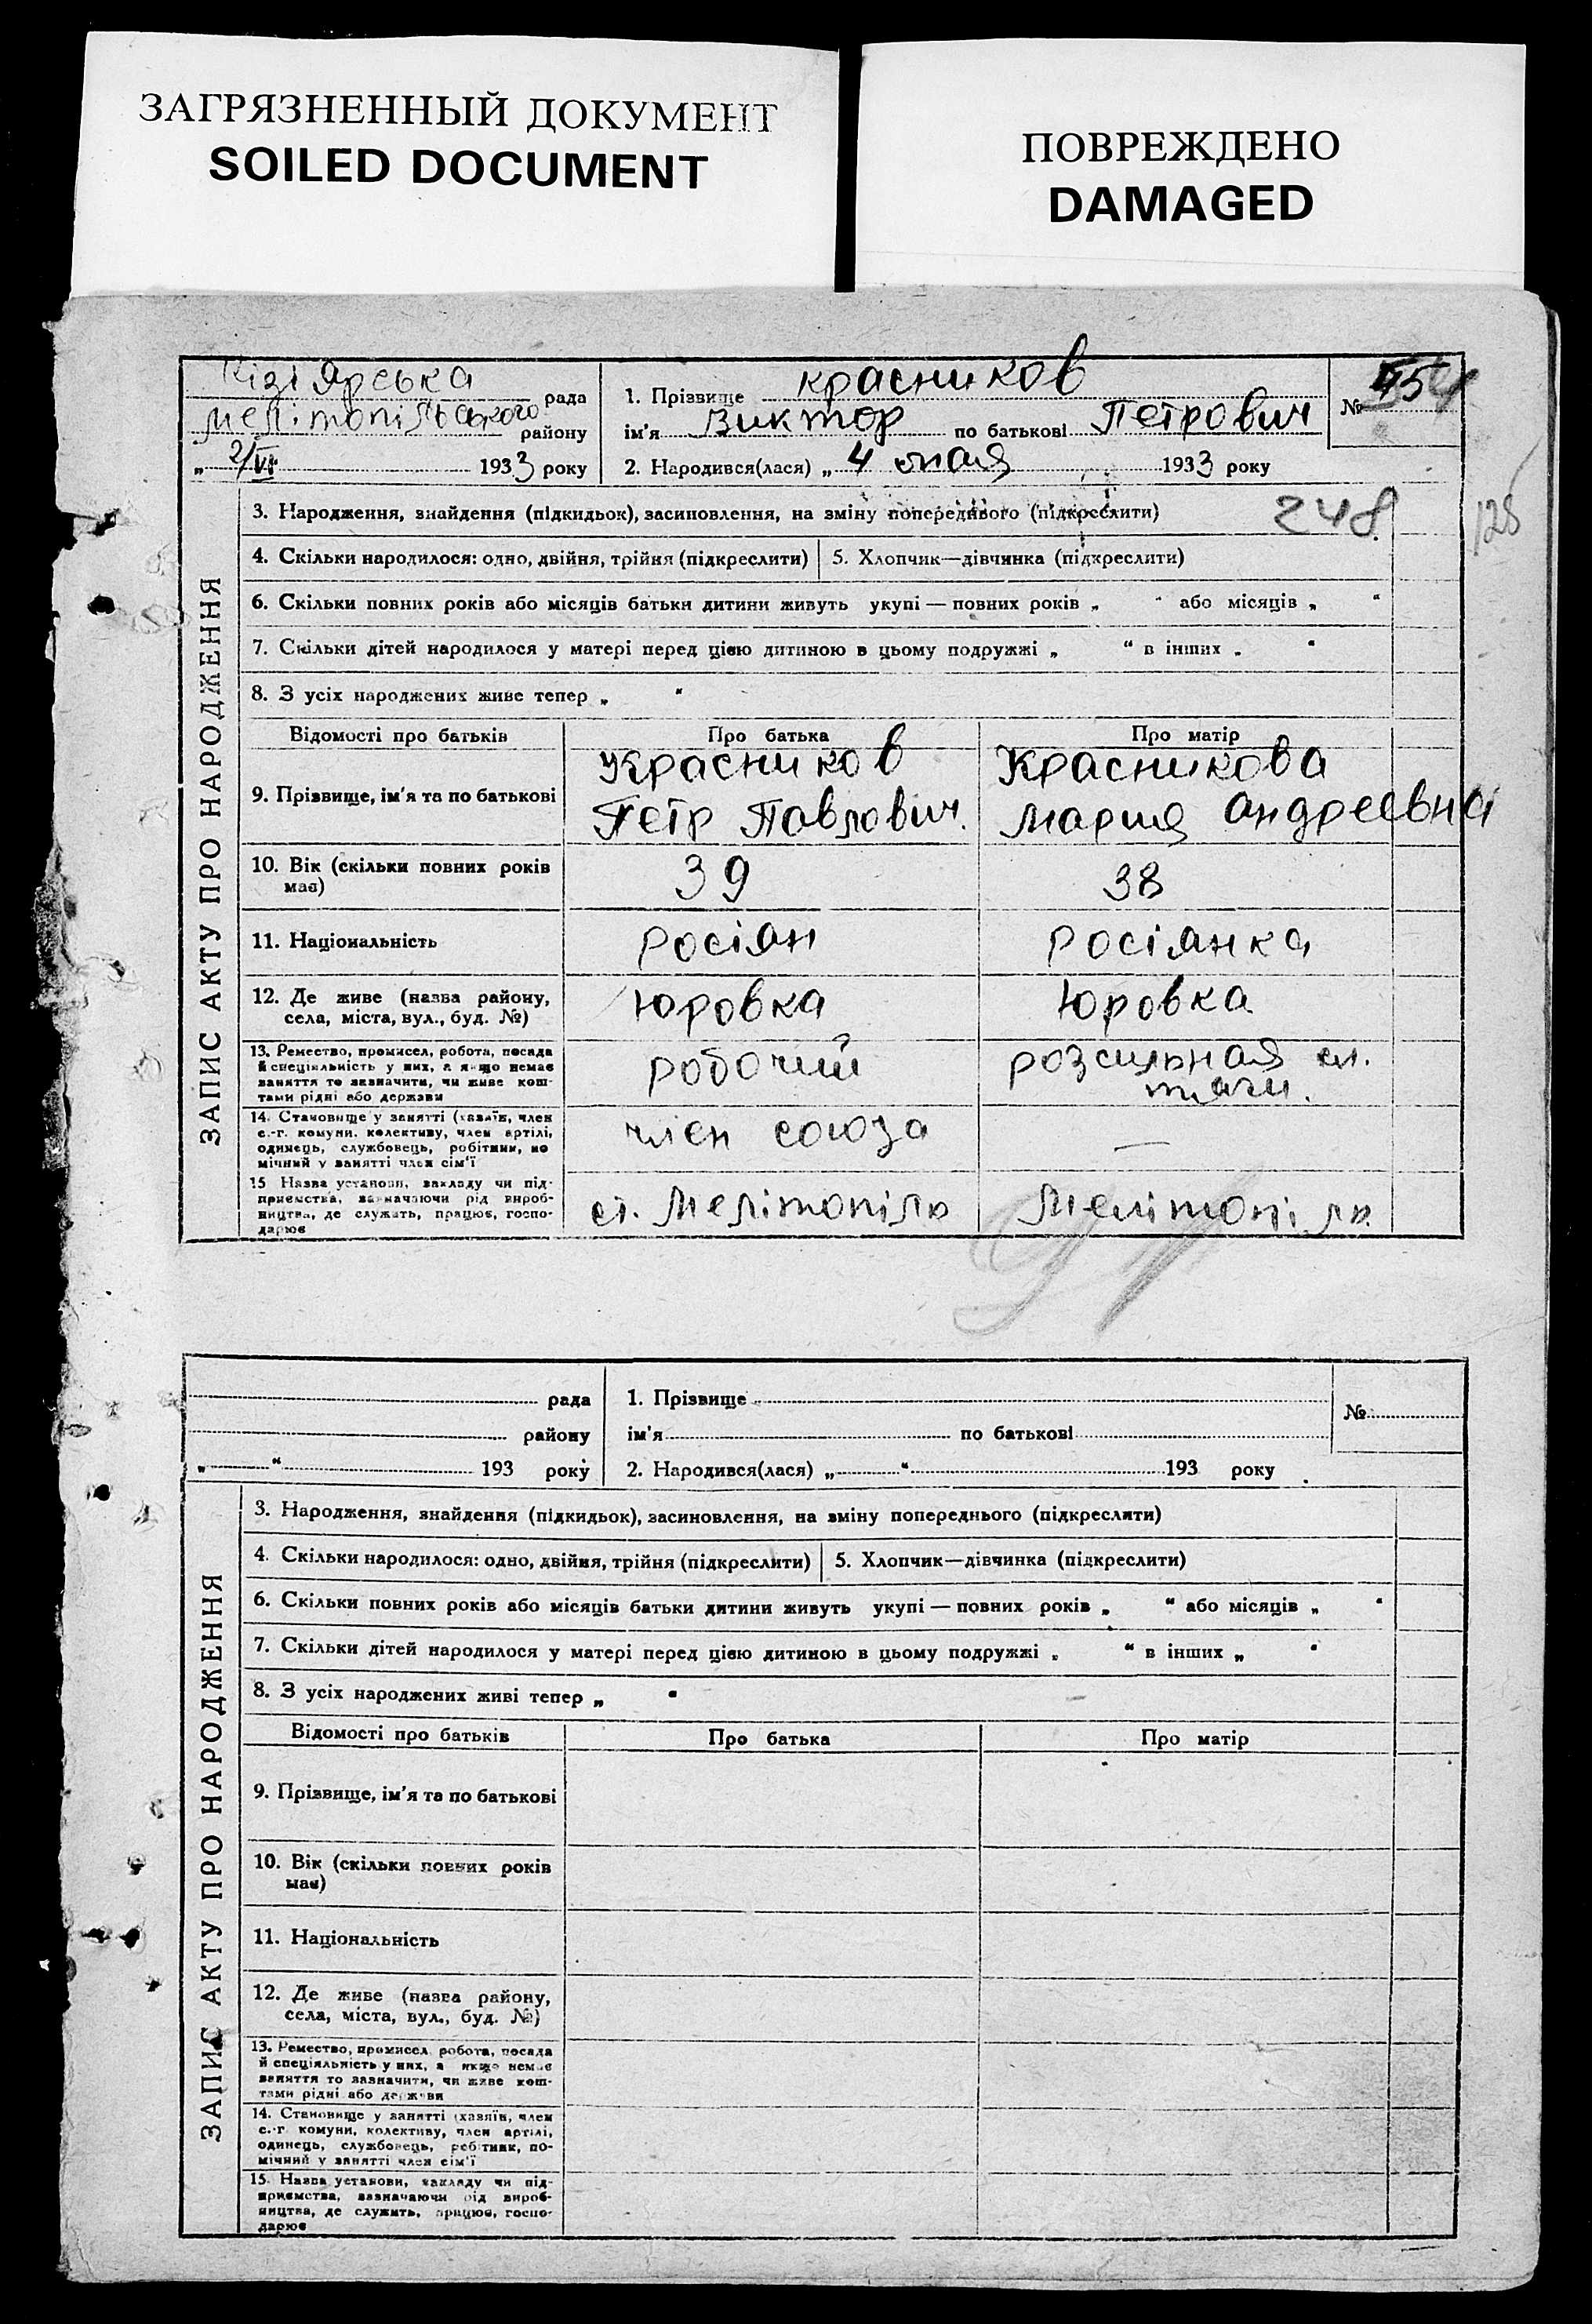 ЗАГРЯЗНЕННЫЙ ДОКУМЕНТ
SOILED DOCUMENT
ПОВРЕЖДЕНО
DAMAGED
Кізіярська рада
Мелітопільського району
„ 2/VI 1933 року
1. Прізвище Красников
ім'я Виктор по батькові Петрович
2. Народився(лася) „ 4 мая 1933 року
№
248
128
ЗАПИС АКТУ ПРО НАРОДЖЕННЯ
3. Народження, знайдення (підкидьок), засиновлення, на зміну попереднього (підкреслити)
4. Скільки народилося: одно, двійня, трійня (підкреслити) 5. Хлопчик—дівчинка (підкреслити)
6. Скільки повних років або місяців батьки дитини живуть укупі — повних років „ “ або місяців „ “
7. Скільки дітей народилося у матері перед цією дитиною в цьому подружжі „ “ в інших „ “
8. З усіх народжених живе тепер „ “
Відомості про батьків Про батька Про матір
9. Прізвище, ім'я та по батькові
Красников
Петр Павлович.
Красникова
Мария Андреевна
10. Вік (скільки повних років
має)
39
38
11. Національність
росіян
росіянка
12. Де живе (назва району,
села, міста, вул., буд. №)
Юровка
Юровка
13. Ремество, промисел, робота, посада
й спеціяльність у них, а якщо немає
заняття то зазначити, чи живе кош-
тами рідні або держави
робочий
розсильная
14. Становище у занятті (хазяїн, член
с.-г. комуни, колективу, член артілі,
одинець, службовець, робітник, по
мічний у занятті член сім'ї
член союза
—
15 Назва установи, закладу чи під-
приємства, зазначаючи рід вироб-
ництва, де служить, працює, госпо-
дарює
ст. Мелітопіль
Мелітопіль
рада
району
„ “ 193 року
1. Прізвище
ім'я по батькові
2. Народився(лася) „ “ 193 року
№
ЗАПИС АКТУ ПРО НАРОДЖЕННЯ
3. Народження, знайдення (підкидьок), засиновлення, на зміну попереднього (підкреслити)
4. Скільки народилося: одно, двійня, трійня (підкреслити) 5. Хлопчик—дівчинка (підкреслити)
6. Скільки повних років або місяців батьки дитини живуть укупі — повних років „ “ або місяців „ “
7. Скільки дітей народилося у матері перед цією дитиною в цьому подружжі „ “ в інших „ “
8. З усіх народжених живі тепер „ “
Відомості про батьків Про батька Про матір
9. Прізвище, ім'я та по батькові
10. Вік (скільки повних років
має)
11. Національність
12. Де живе (назва району,
села, міста, вул., буд. №)
13. Ремество, промисел, робота, посада
й спеціяльність у них, а якщо немає
заняття то зазначити, чи живе кош-
тами рідні або держави
14. Становище у занятті (хазяїн, член
с.-г. комуни, колективу, член артілі,
одинець, службовець, робітник, по-
мічний у занятті член сім'ї
15. Назва установи, закладу чи під-
приємства, зазначаючи рід вироб-
ництва, де служить, працює, госпо-
дарює